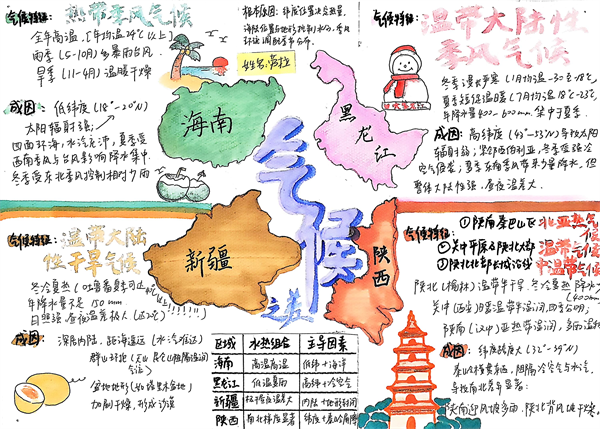 气候特征:
热带季风气候
全年高温,(年均温24℃以上)
雨季(5-10月)多暴雨台风
旱季(11-4月)温暖干燥
成因:低纬度(18°-20°N)
太阳辐射强;
四面环海,水汽充沛,夏季受
西南季风与台风影响降水集中.
冬季受东北季风控制相对少雨
根本原因:纬度位置决定热量,
海陆位置与地形控制水分,季风
环流调配季节分布.
姓名:
海南
黑龙江
新疆
陕西
气候
之美
气候特征:
温带大陆性
季风气候
冬季漫长严寒(1月均温-30~-18℃,
夏季短促温暖(7月均温18℃-23℃,
年降水量400-600mm,集中于夏季.
成因:高纬度(43°-53°N)导致太阳
辐射弱;紧邻西伯利亚,冬季受强冷
空气侵袭;夏季东南季风带来少量降水,但
整体大陆性强,昼夜温差大.
气候特征:
温带大陆
性干旱气候
冬冷夏热(吐鲁番夏季可
年降水量不足150mm
日照强,昼夜温差极大
成因:
深居内陆,距海遥远(水汽难达)
群山环抱(天山昆仑山阻隔湿润
气流)
盆地地形(如塔里木盆地)
加剧干燥,形成沙漠
区域 水热组合 主导因素
海南 高温高湿 低纬+海洋
黑龙江 低温夏雨 高纬+冷空气
新疆 极干旱温差大 内陆+地形封闭
陕西 南北梯度显著 纬度+秦岭屏障
气候特征:
①陕南秦巴山区 北亚热带气候
②关中平原&陕北大部 温带气候
③陕北北部长城沿线 中温带气候
陕北(榆林)温带半干旱,冬冷夏热降水少
(400mm)
关中(西安)暖温带半湿润,四季分明,
陕南(汉中)亚热带湿润,多雨温和
成因:纬度跨度大(32°-39°N)
秦岭横贯东西,阻隔冷空气与水汽,
导致南北差异显著:
陕南迎风坡多雨,陕北背风坡干燥.